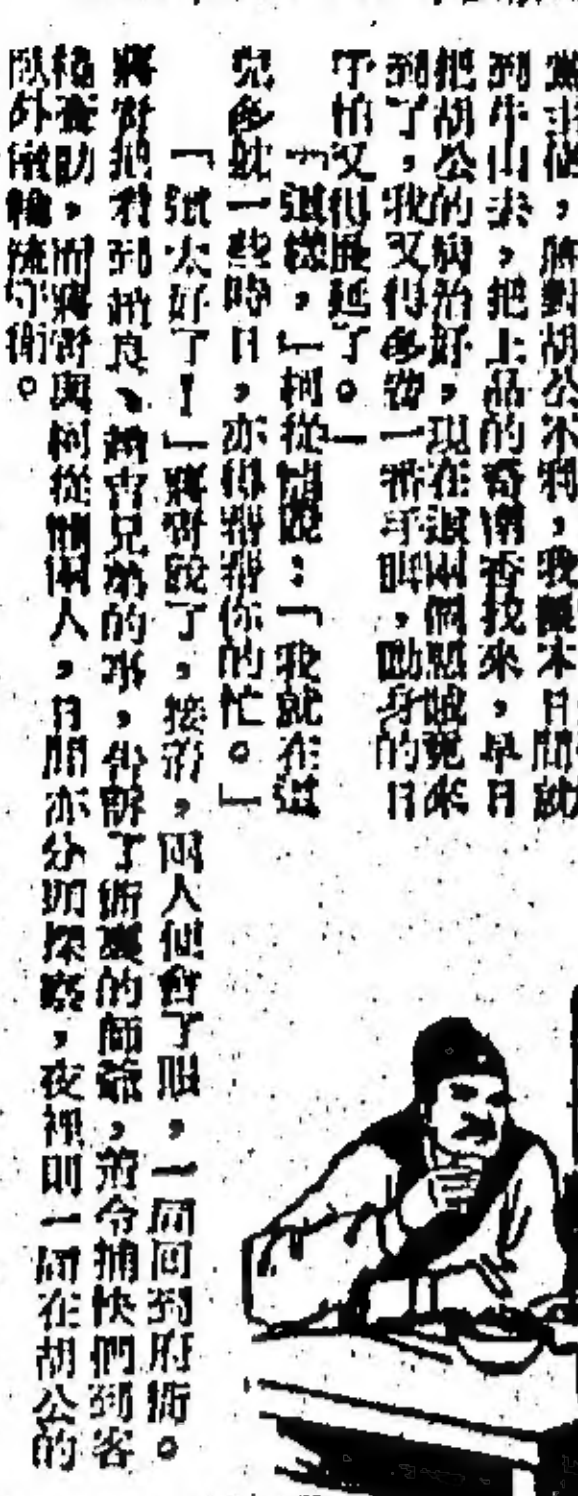 黨主使,牌對胡公不利,我原本日間就
到牛山去,把上品的奇南香找來,早日
把胡公的病治好,現在這兩個惡賊竟來
到了,我又得多費一番手脚,動身的日
子怕又得展延了。」
「這樣,」柯從開說:「我就在這
兒多躭一些時日,亦得幫幫你的忙。」
「這太好了!」蔣哥說了,接着,兩人便會了賬,一同回到府衙。
蔣哥把看到趙良、趙吉兄弟的事,告訴了衙裏的師爺,並令捕快們到客
棧查勘,而蔣哥與柯從開兩人,日間亦分頭探察,夜裡則一同在胡公的
臥外徹輪流守衛。